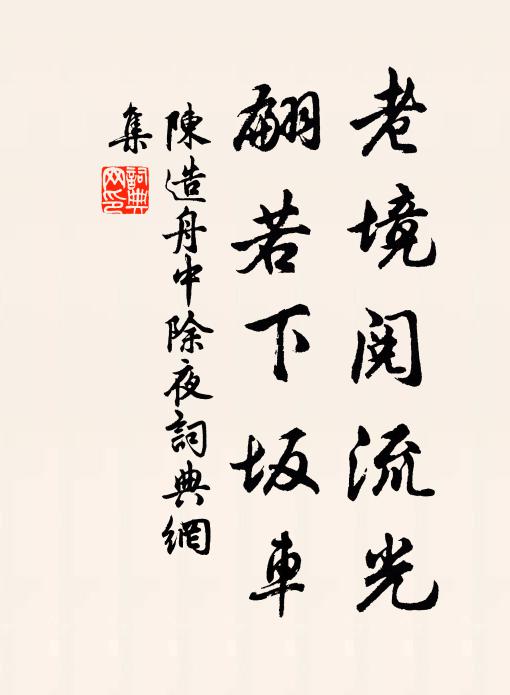 老境閱流光
翩若下坂車
陳造舟中除夜詞典網
集
詞典
网印